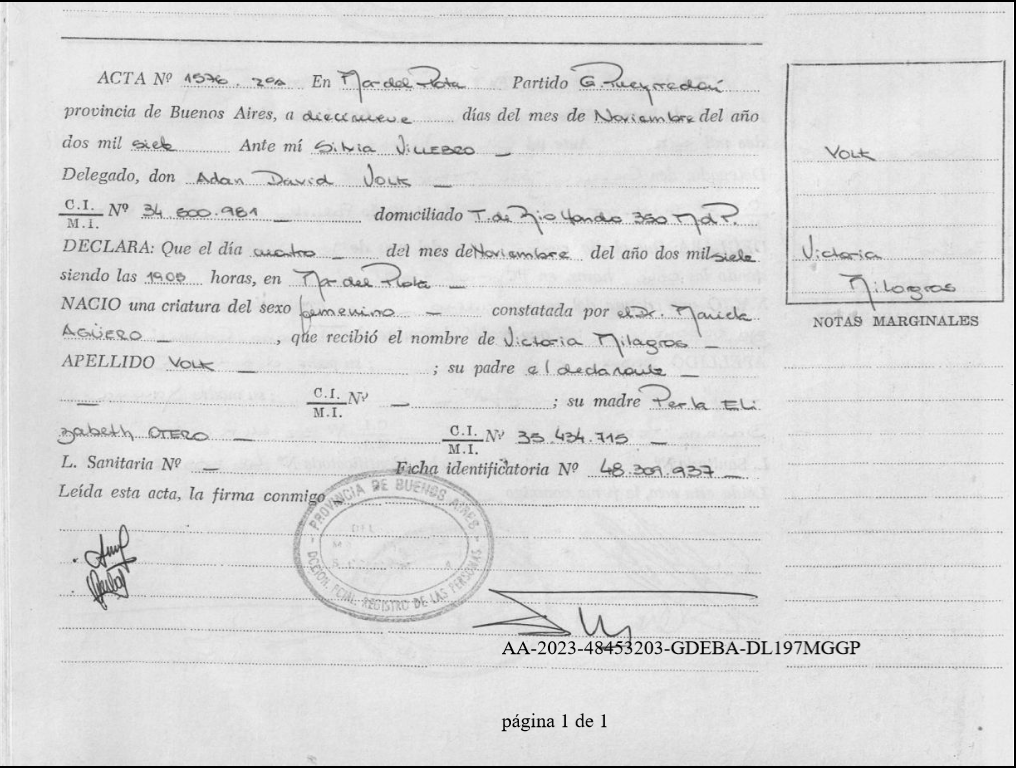 ACTA Nº 1576. 20A En Mar del Plata Partido G. Pueyrredón
provincia de Buenos Aires, a diecinueve días del mes de Noviembre del año
dos mil siete Ante mí Silvia VILLEGRO —
Delegado, don Adan David VOLK —
C.I.
M.I. Nº 34.800.981 — domiciliado T. de Rio Hondo 350 MdP.
DECLARA: Que el día cuatro — del mes de Noviembre del año dos mil siete
siendo las 1905 horas, en Mar del Plata —
NACIO una criatura del sexo femenino — constatada por el Dr.
AGÜERO — , que recibió el nombre de Victoria Milagros —
APELLIDO VOLK — ; su padre el declarante —
— C.I.
M.I. Nº — ; su madre Perla Eli
zabeth OTERO — C.I.
M.I. Nº 35.434.715 —
L. Sanitaria Nº — Ficha identificatoria Nº 48.309.937 —
Leída esta acta, la firma conmigo
VOLK
Victoria
Milagros
NOTAS MARGINALES
PROVINCIA DE BUENOS AIRES
DCCION. PCIAL. REGISTRO DE LAS PERSONAS
AA-2023-48453203-GDEBA-DL197MGGP
página 1 de 1